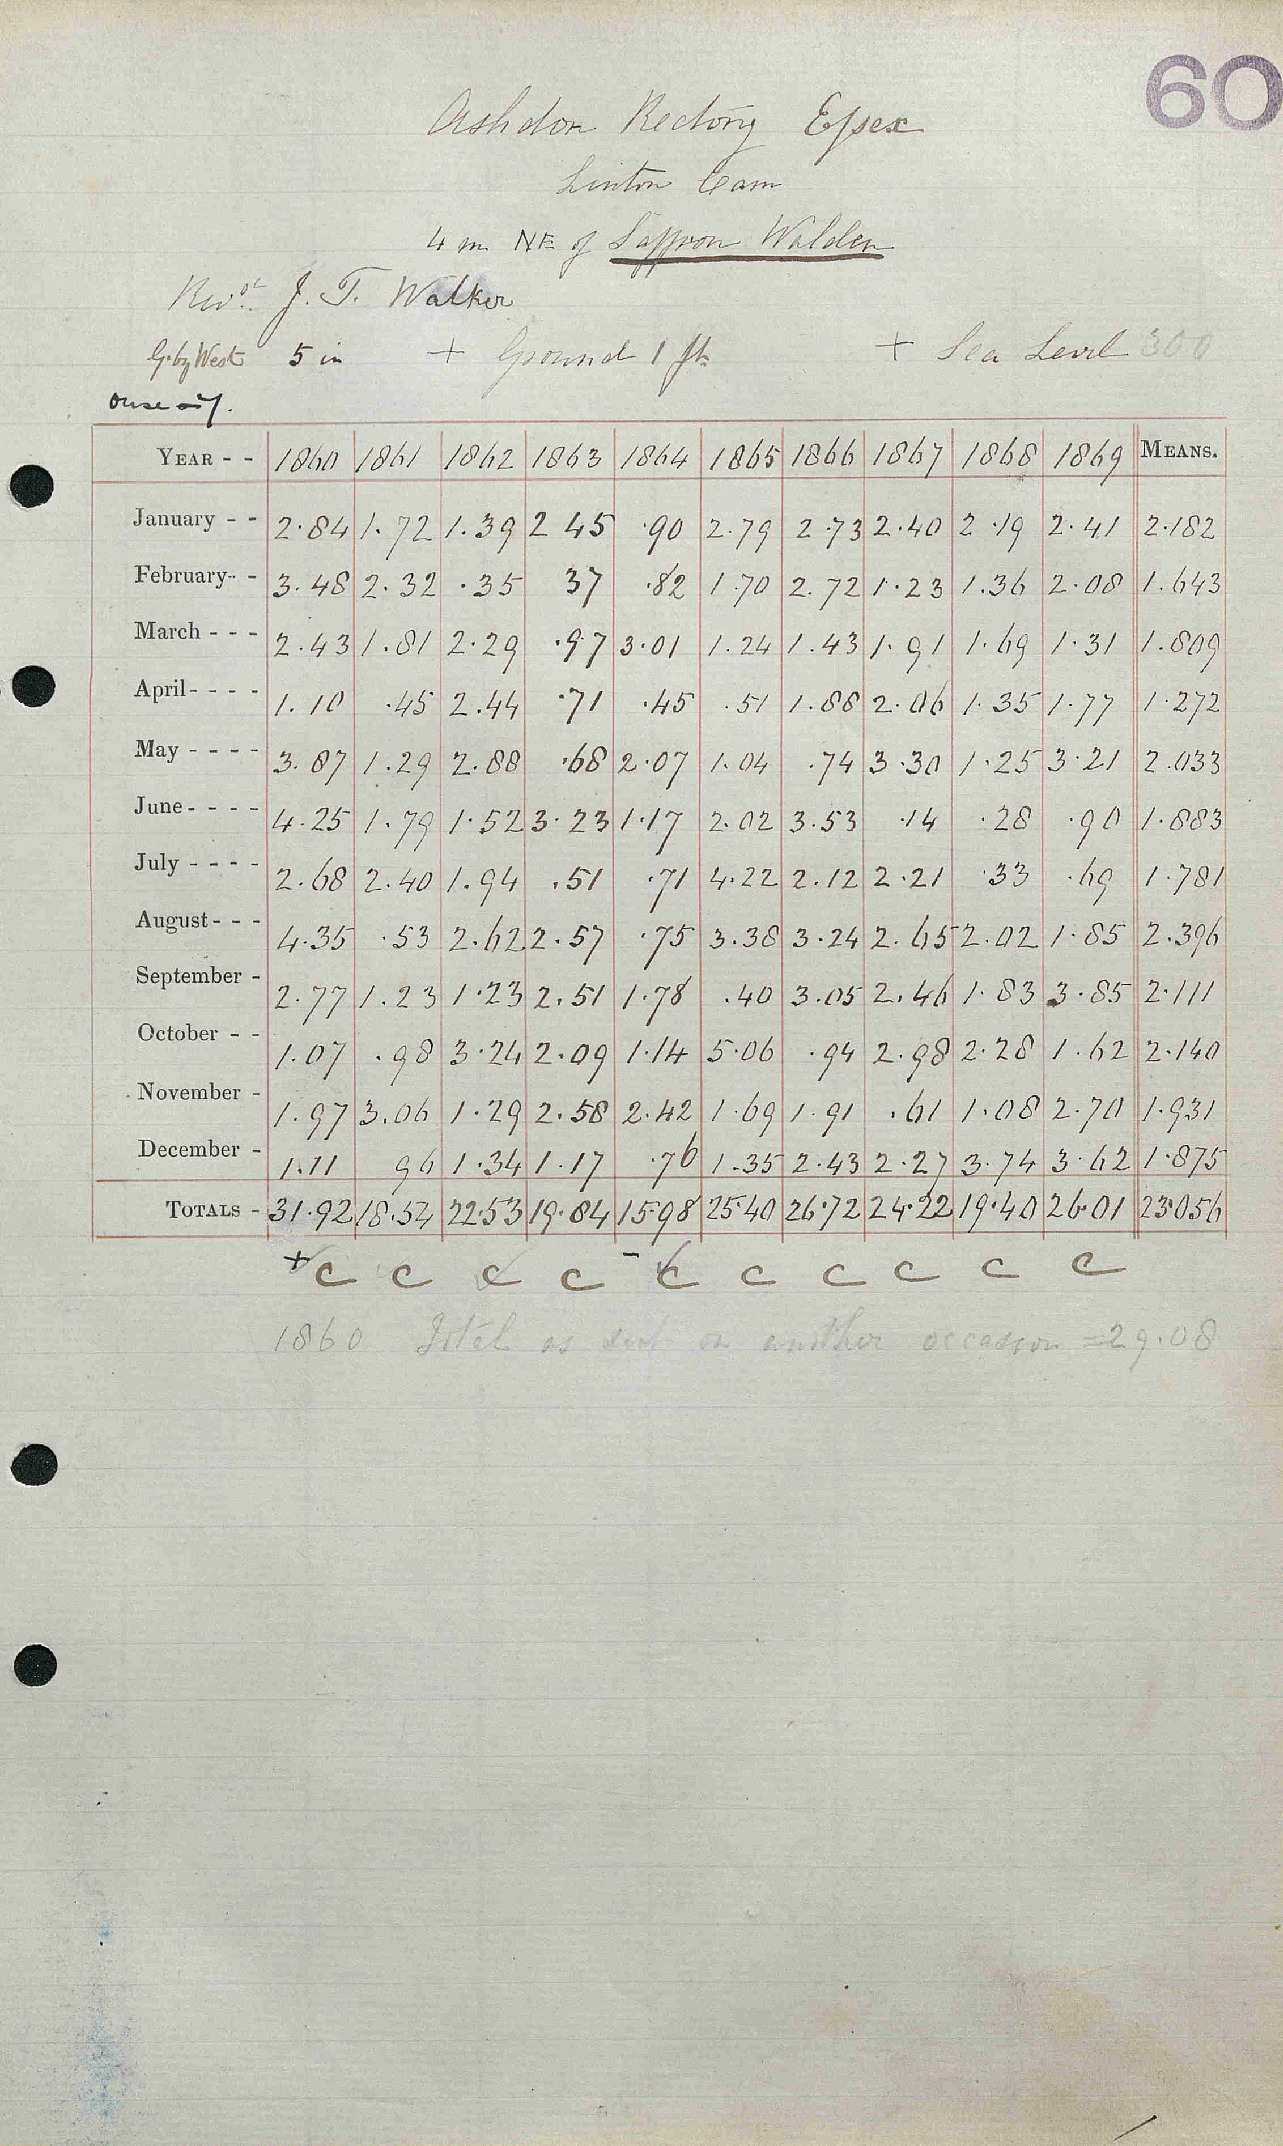 60
Ashdon Rectory Essex
Linton Cam
4 m NE of Saffron Walden
Revd. J. T. Walker
G. by West 5 in + Ground 1 ft + Sea Level 300
Ouse
YEAR - - 1860 1861 1862 1863 1864 1865 1866 1867 1868 1869 MEANS.
January - - 2.84 1.72 1.39 2 45 .90 2.79 2.73 2.40 2.19 2.41 2.182
February - - 3.48 2.32 .35 37 .82 1.70 2.72 1.23 1.36 2.08 1.643
March - - - 2.43 1.81 2.29 .97 3.01 1.24 1.43 1.91 1.69 1.31 1.809
April - - - - 1.10 .45 2.44 .71 .45 .51 1.88 2.06 1.35 1.77 1.272
May - - - - 3.87 1.29 2.88 .68 2.07 1.04 .74 3.30 1.25 3.21 2.033
June - - - - 4.25 1.79 1.52 3.23 1.17 2.02 3.53 .14 .28 .90 1.883
July - - - - 2.68 2.40 1.94 .51 .71 4.22 2.12 2.21 .33 .69 1.781
August - - - 4.35 .53 2.62 2.57 .75 3.38 3.24 2.65 2.02 1.85 2.396
September - 2.77 1.23 1.23 2.51 1.78 .40 3.05 2.46 1.83 3.85 2.111
October - - 1.07 .98 3.24 2.09 1.14 5.06 .94 2.98 2.28 1.62 2.140
November - 1.97 3.06 1.29 2.58 2.42 1.69 1.91 .61 1.08 2.70 1.931
December - 1.11 96 1.34 1.17 .76 1.35 2.43 2.27 3.74 3.62 1.875
TOTALS - 31.92 18.54 22.53 19.84 15.98 25.40 26.72 24.22 19.40 26.01 23.056
+ C C C C - C C C C C C
1860 Total as sent on another occasion = 29.08